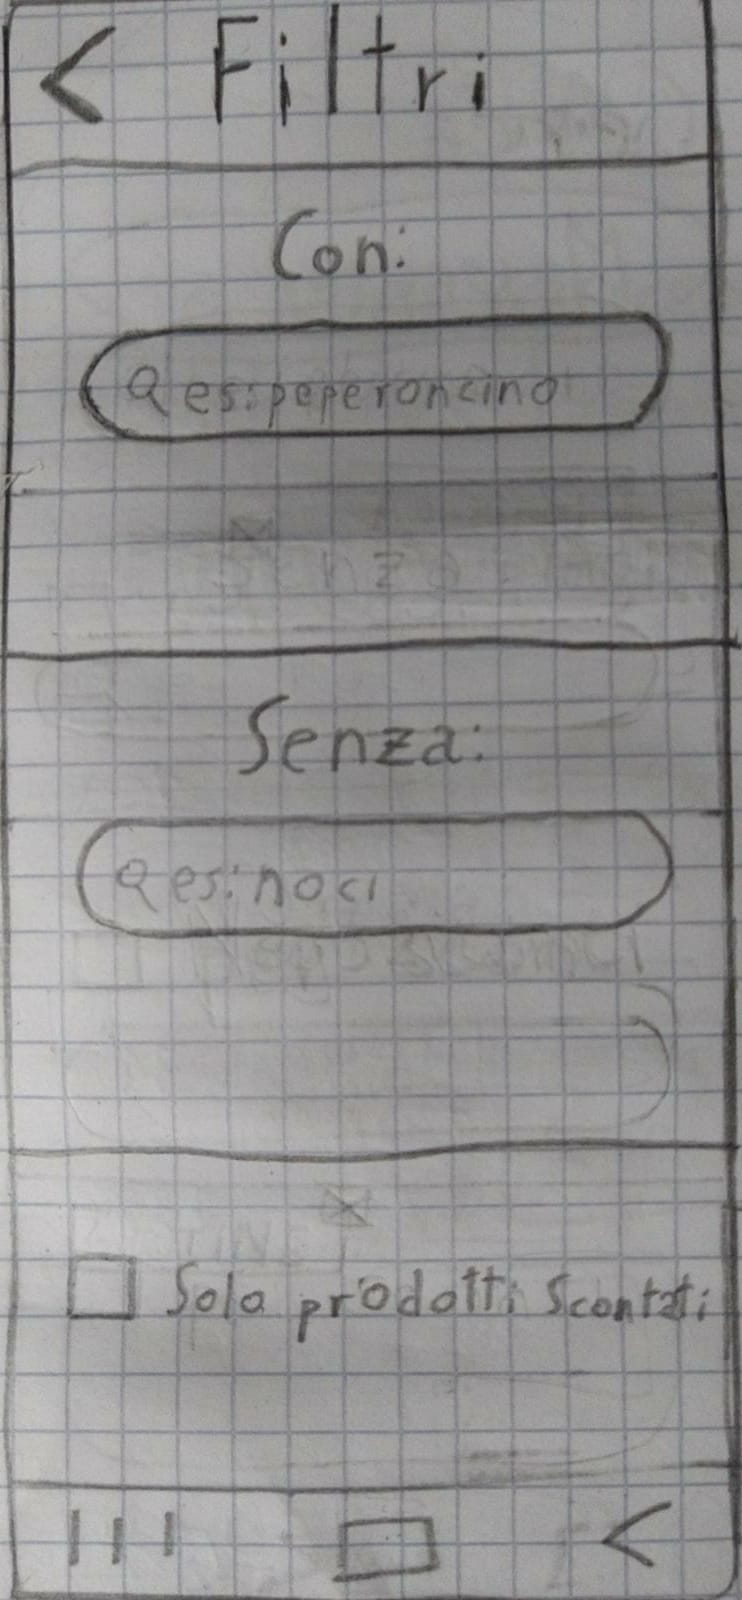 < Filtri
Con:
es: peperoncino
Senza:
es: noci
Solo prodotti scontati